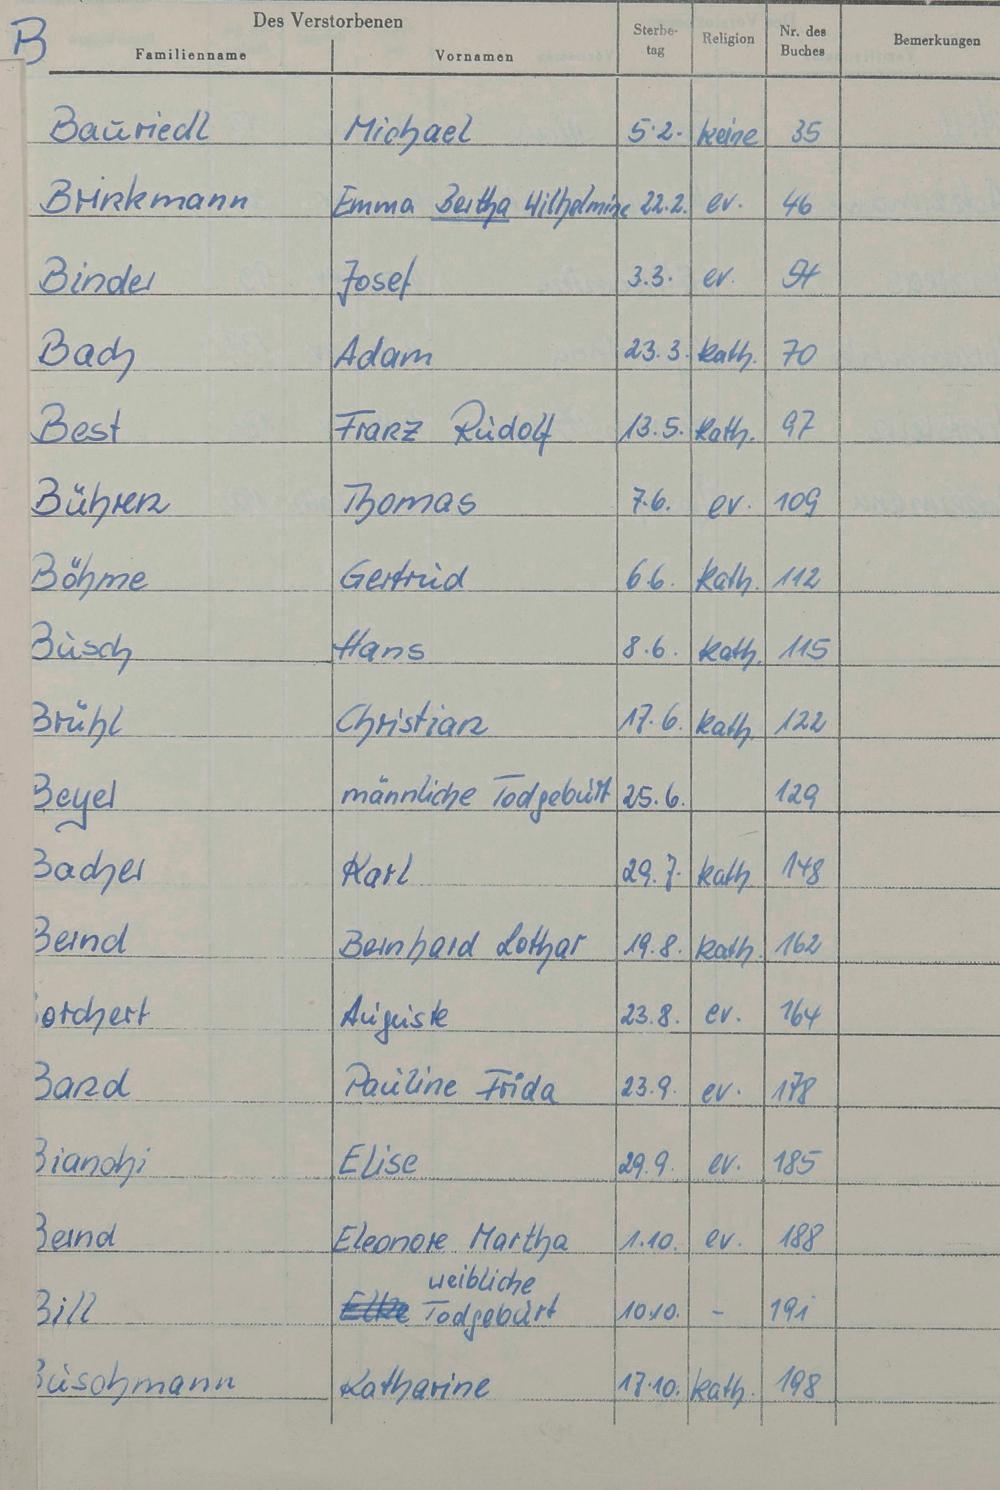 B
Des Verstorbenen
Familienname Vornamen Sterbe-tag Religion Nr. des Buches Bemerkungen
Bauriedl Michael 5.2. keine 35
Brinkmann Emma Bertha Wilhelmine 22.2. ev. 46
Binder Josef 3.3. ev.
Bach Adam 23.3. kath. 70
Best Franz Rudolf 13.5. kath. 97
Bührer Thomas 7.6. ev. 109
Böhme Gertrud 6.6. kath. 112
Busch Hans 8.6. kath. 115
Brühl Christian 17.6. kath. 122
Beyer männliche Todgeburt 25.6. 129
Bacher Karl 29.7. kath. 148
Bernd Bernhard Lothar 19.8. kath. 162
Borchert Auguste 23.8. ev. 164
Band Pauline Frida 23.9. ev. 178
Bianchi Elise 29.9. ev. 185
Bernd Eleonore Martha 1.10. ev. 188
Bill weibliche Todgeburt 10.10. - 191
Buschmann Katharine 17.10. kath. 198